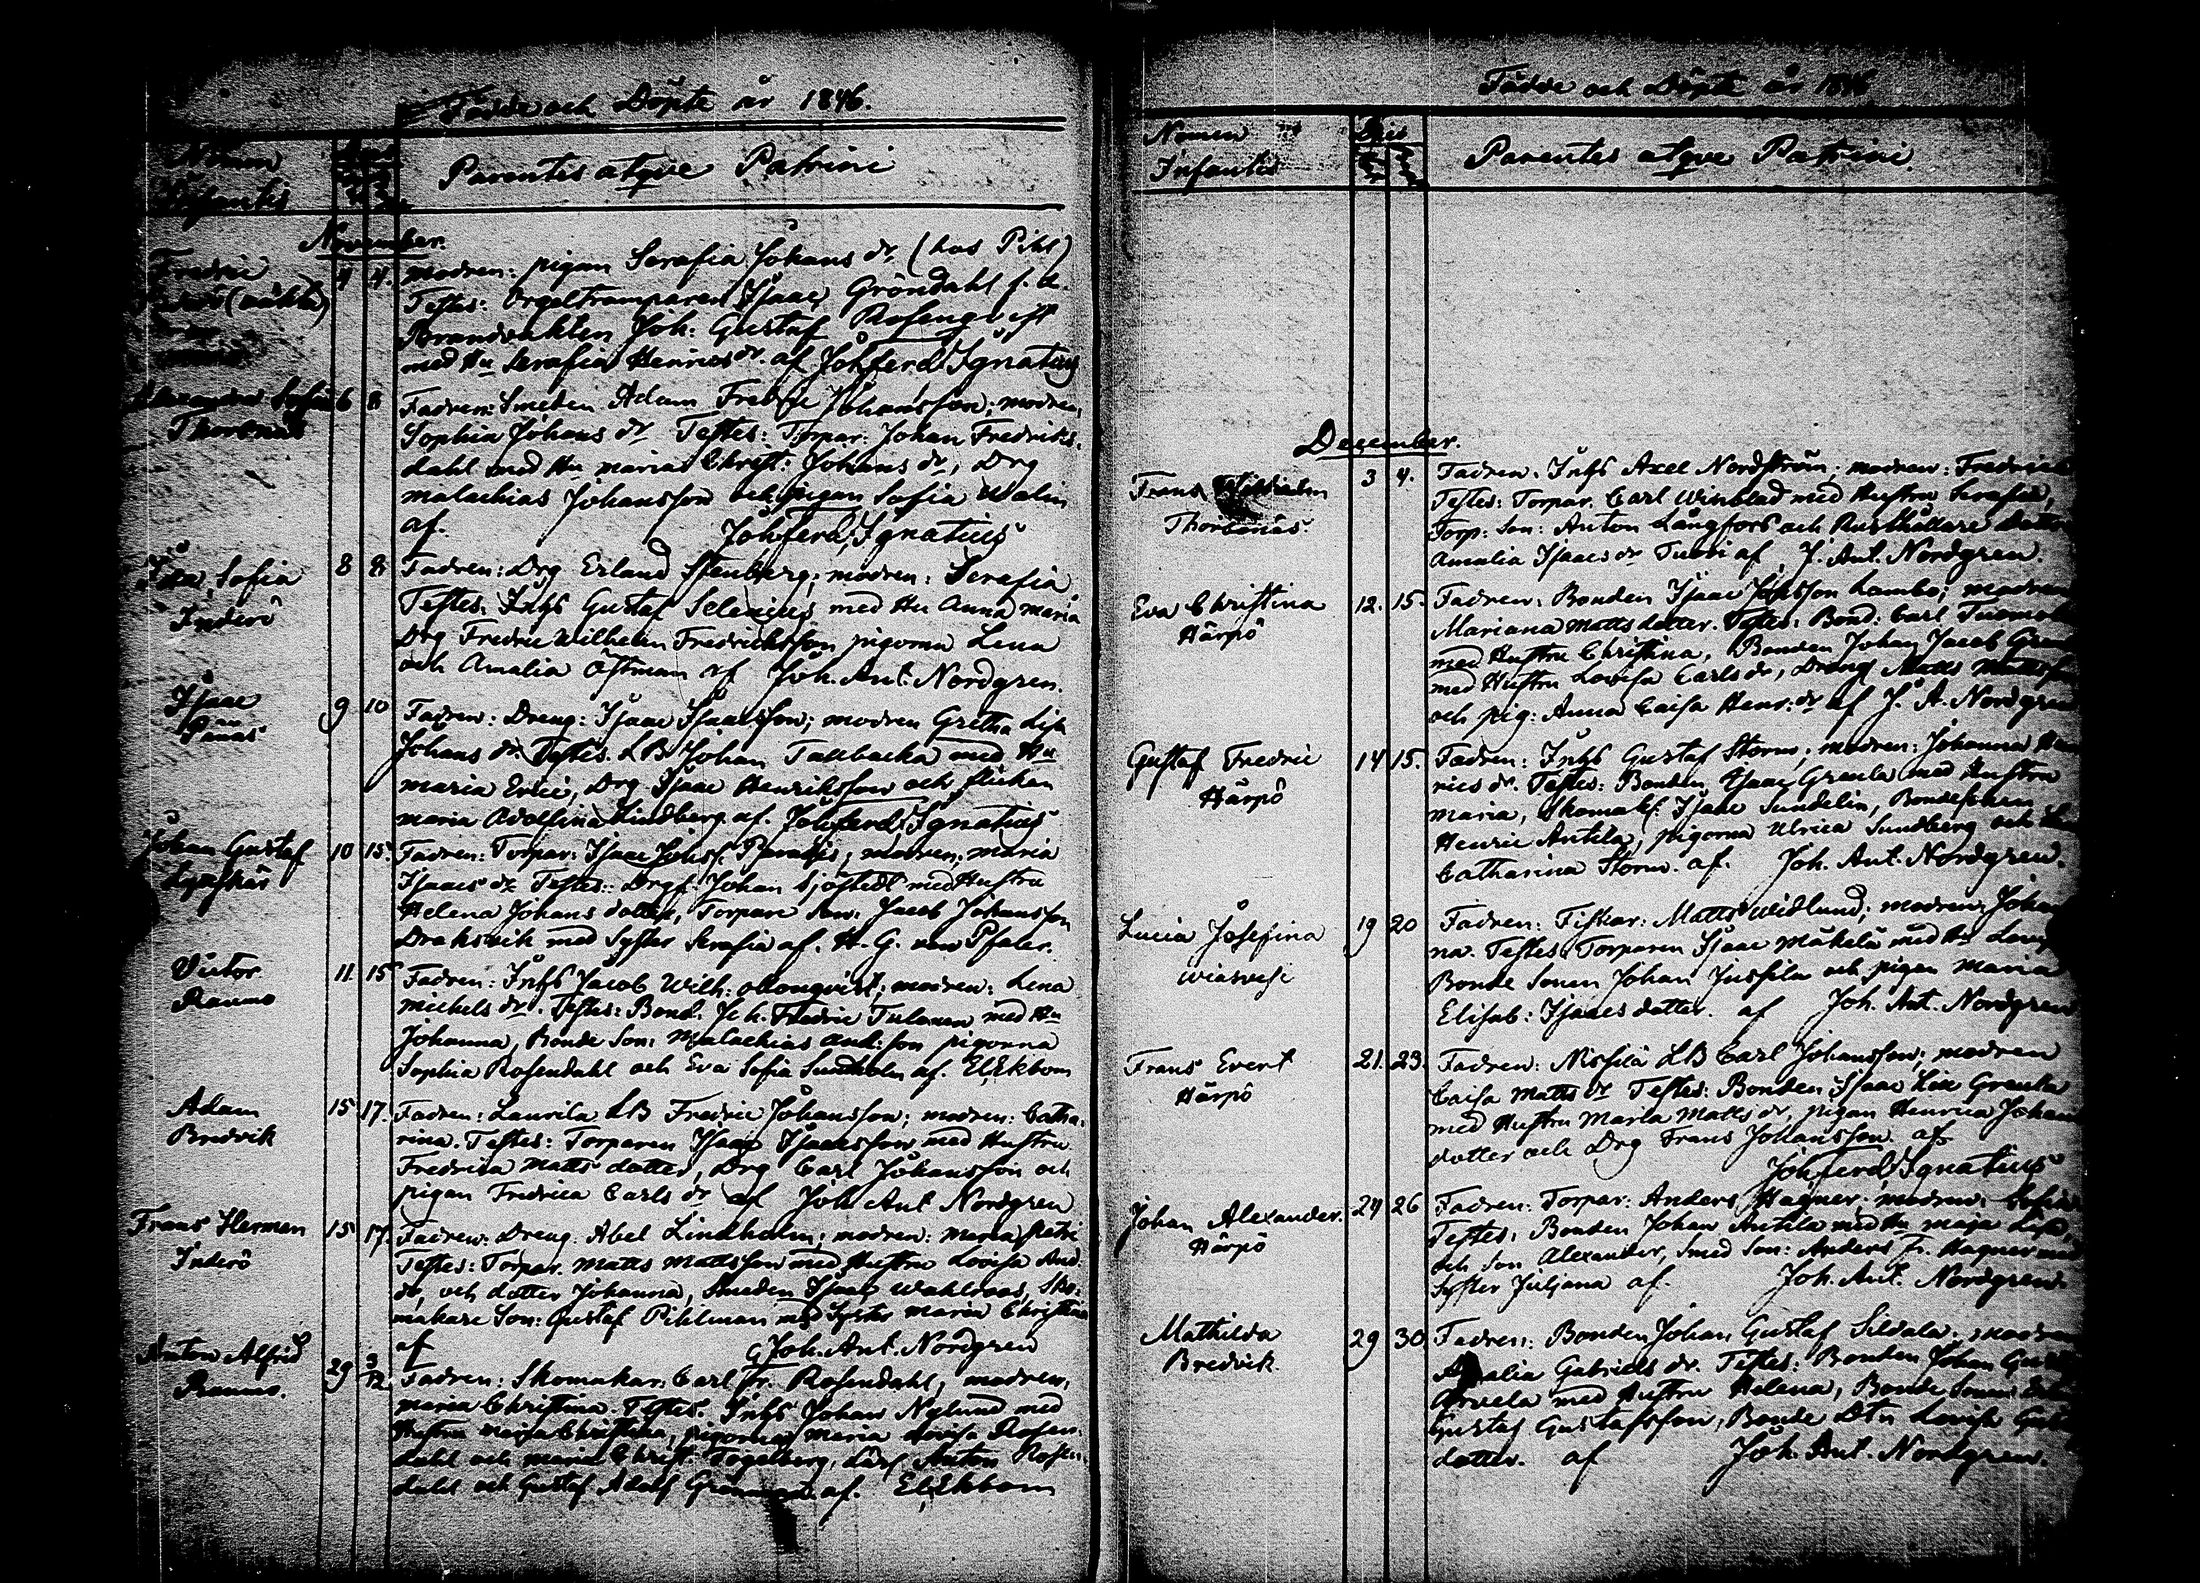 Födde och Döpte år 1846.
Nomen
Infantis
Parentes atqve Patrini
November.
Fredric
(oäkta)
4 4. modren: pigan Serafia Johans dr. (hos Pihl)
Testes: Orgeltramparen Isaac Gröndahl f. d.
Brandvakten Joh: Gustaf Rosenqvist
med Hu Serafia Henrics dr. af Johferd Ignatius
Alexandra Sofia 6 8
Thorlnäs
Fadren: Smeden Adam Fredric Johansson; modren,
Sophia Johans dr. Testes: Torpar: Johan Fredriks-
dahl med Hu maria Christ: Johans dr, Drg
malachias Johansson och pigan Sofia Walin
af. Johferd, Ignatius
Ida, Sofia 8 8
Inderö
Fadren: Drg Erland Stenberg; modren: Serafia
Testes. Inhs Gustaf Selenius med Hu Anna maria
Drg Fredric Wilhelm Fredricksson pigorna Lena
och Amalia Östman af Joh. Ant. Nordgren.
Isaac 9 10
Pänäs
Fadren: Dreng: Isaac Isaacsson; modren Gretha Lisa
Johans dr. Testes. LB Johan Tallbacka med Hu
maria Erici, Drg Isaac Henriksson och flickan
maria Adolfina Lindberg. af. Johferd, Ignatius
Johan Gustaf 10 15.
Fadren: Torpar: Isaac Johss. ; modren: maria
Isaacs dr Testes: Drg: Johan Sjöstedt med Hustru
Helena Johans dotter, Torpare Son: Jacob Johansson
Draksvik med Syster Serafia af. H. G. von Pfaler.
Victor 11. 15
Raumo
Fadren: Inhs Jacob Wilh: ; modren: Lena
michels dr. Testes: Bond. Joh. Fredric Tulonen med Hu
Johanna, Bonde Son: Malachias And:son pigorna
Sophia Rosendahl och Eva Sofia Sundholm af. El, Ekbom
Adam 15 17.
Bredvik
Fadren: Laurila LB Fredric Johansson; modren: Catha-
rina. Testes: Torparen Isaac Isaacsson med Hustru
Fredrica Matts dotter, Drg Carl Johansson och
pigan Fredrica Carls dr af Joh Ant Nordgren
Frans Herman 15 17.
Inderö
Fadren: Dreng: Abel Lindholm; modren: maria Petri
Testes: Torpar. Matts Mattsson med Hustru Lovisa And.
dr, och dotter Johanna, Smeden Isaac Wahlroos, Sko-
makare Son: Gustaf Pihlman med Syster maria Christina
af Joh. Ant. Nordgren
Anton Alfrid 29 3/12
Raumo.
Fadren: Skomakar: Carl Fr. Rosendahl, modren,
maria Christina. Testes. Inhs Johan Nylund med
Hustru maja Christina, pigorna maria Lovisa Rosen-
dahl och maria Christ: Fogelberg, Anton Rosen-
dahl och Gustaf Adolf af. El, Ekbom
Födde och Döpte år 1846
Nomen
Infantis
Dies
Parentes atqve Patrini
December.
Frans Wilhelm 3 4.
Thorlnäs
Fadren: Inhs Axel Nordström; modren: Fredrica
Testes: Torpar. Carl Winblad med Hustru Serafia,
Torp: Son: Anton Långfors och Rusthållare Dotter
Amalia Isaacs dr Tuori af J. Ant. Nordgren.
Eva Christina 12. 15.
Härpö
Fadren: Bonden Isaac Johsson Lambo; modren
Mariana Matts dotter. Testes: Bond: Carl
med Hustru Christina, Bonden Johan Jacob
med Hustru Lovisa Carls dr, Dreng Matts Mattsson
och pig: Anna Caisa Henr: dr af J. A. Nordgren
Gustaf Fredric 14 15.
Härpö
Fadren: Inhs Gustaf Storm; modren: Johanna Hen-
rics dr. Testes: Bonden Isaac Granla med Hustru
maria, Skomak: Isaac Sundelin, Bondesonen
Henric Antila, pigorna Ulrica Sundberg och
Catharina Storm. af. Joh. Ant. Nordgren.
Lucia Josefina 19 20
Wiasvesi
Fadren: Fiskar: Matts Widlund; modren: Johan-
na. Testes: Torparen Isaac Mäkelä med Hu
Bonde Sonen Johan Jussila och pigan Maria
Elisab: Isaacs dotter. af Joh. Ant. Nordgren
Frans Evert 21. 23.
Härpö
Fadren: Nissilä LB Carl Johansson; modren
Caisa Matts dr Testes: Bonden Isaac Granla
med Hustru Maria Matts dr, pigan Henrica Johans
dotter och Drg Frans Johansson. af
Johferd, Ignatius
Johan Alexander. 24 26
Härpö
Fadren: Torpar: Anders Hagner; modren: Sofia
Testes: Bonden Johan Antila med Hu maja Lisa,
och Son Alexander, Smed Son: Anders Fr. Hagner med
Syster Juliana af. Joh. Ant. Nordgren.
Mathilda 29 30
Bredvik.
Fadren: Bonden Johan Gustaf Sildala. modren
Amalia Gabriels dr. Testes: Bonden Johan
Arvela med Hustru Helena, Bonde Sonen
Gustaf Gustafsson, Bonde Dtr Lovisa
dotter. af Joh. Ant. Nordgren.